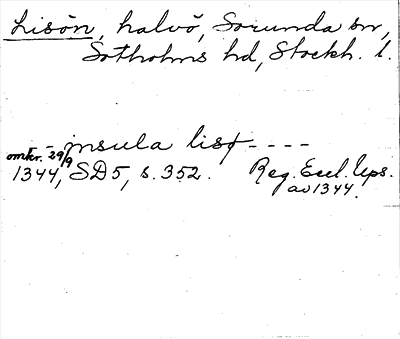 Lisön, halvö, Sorunda sn,
Sotholms hd, Stockh. l.
- - insula listt - - - -
omkr. 29/9
1344, SD5, s. 352. Reg. Eccl. Ups.
av 1344.